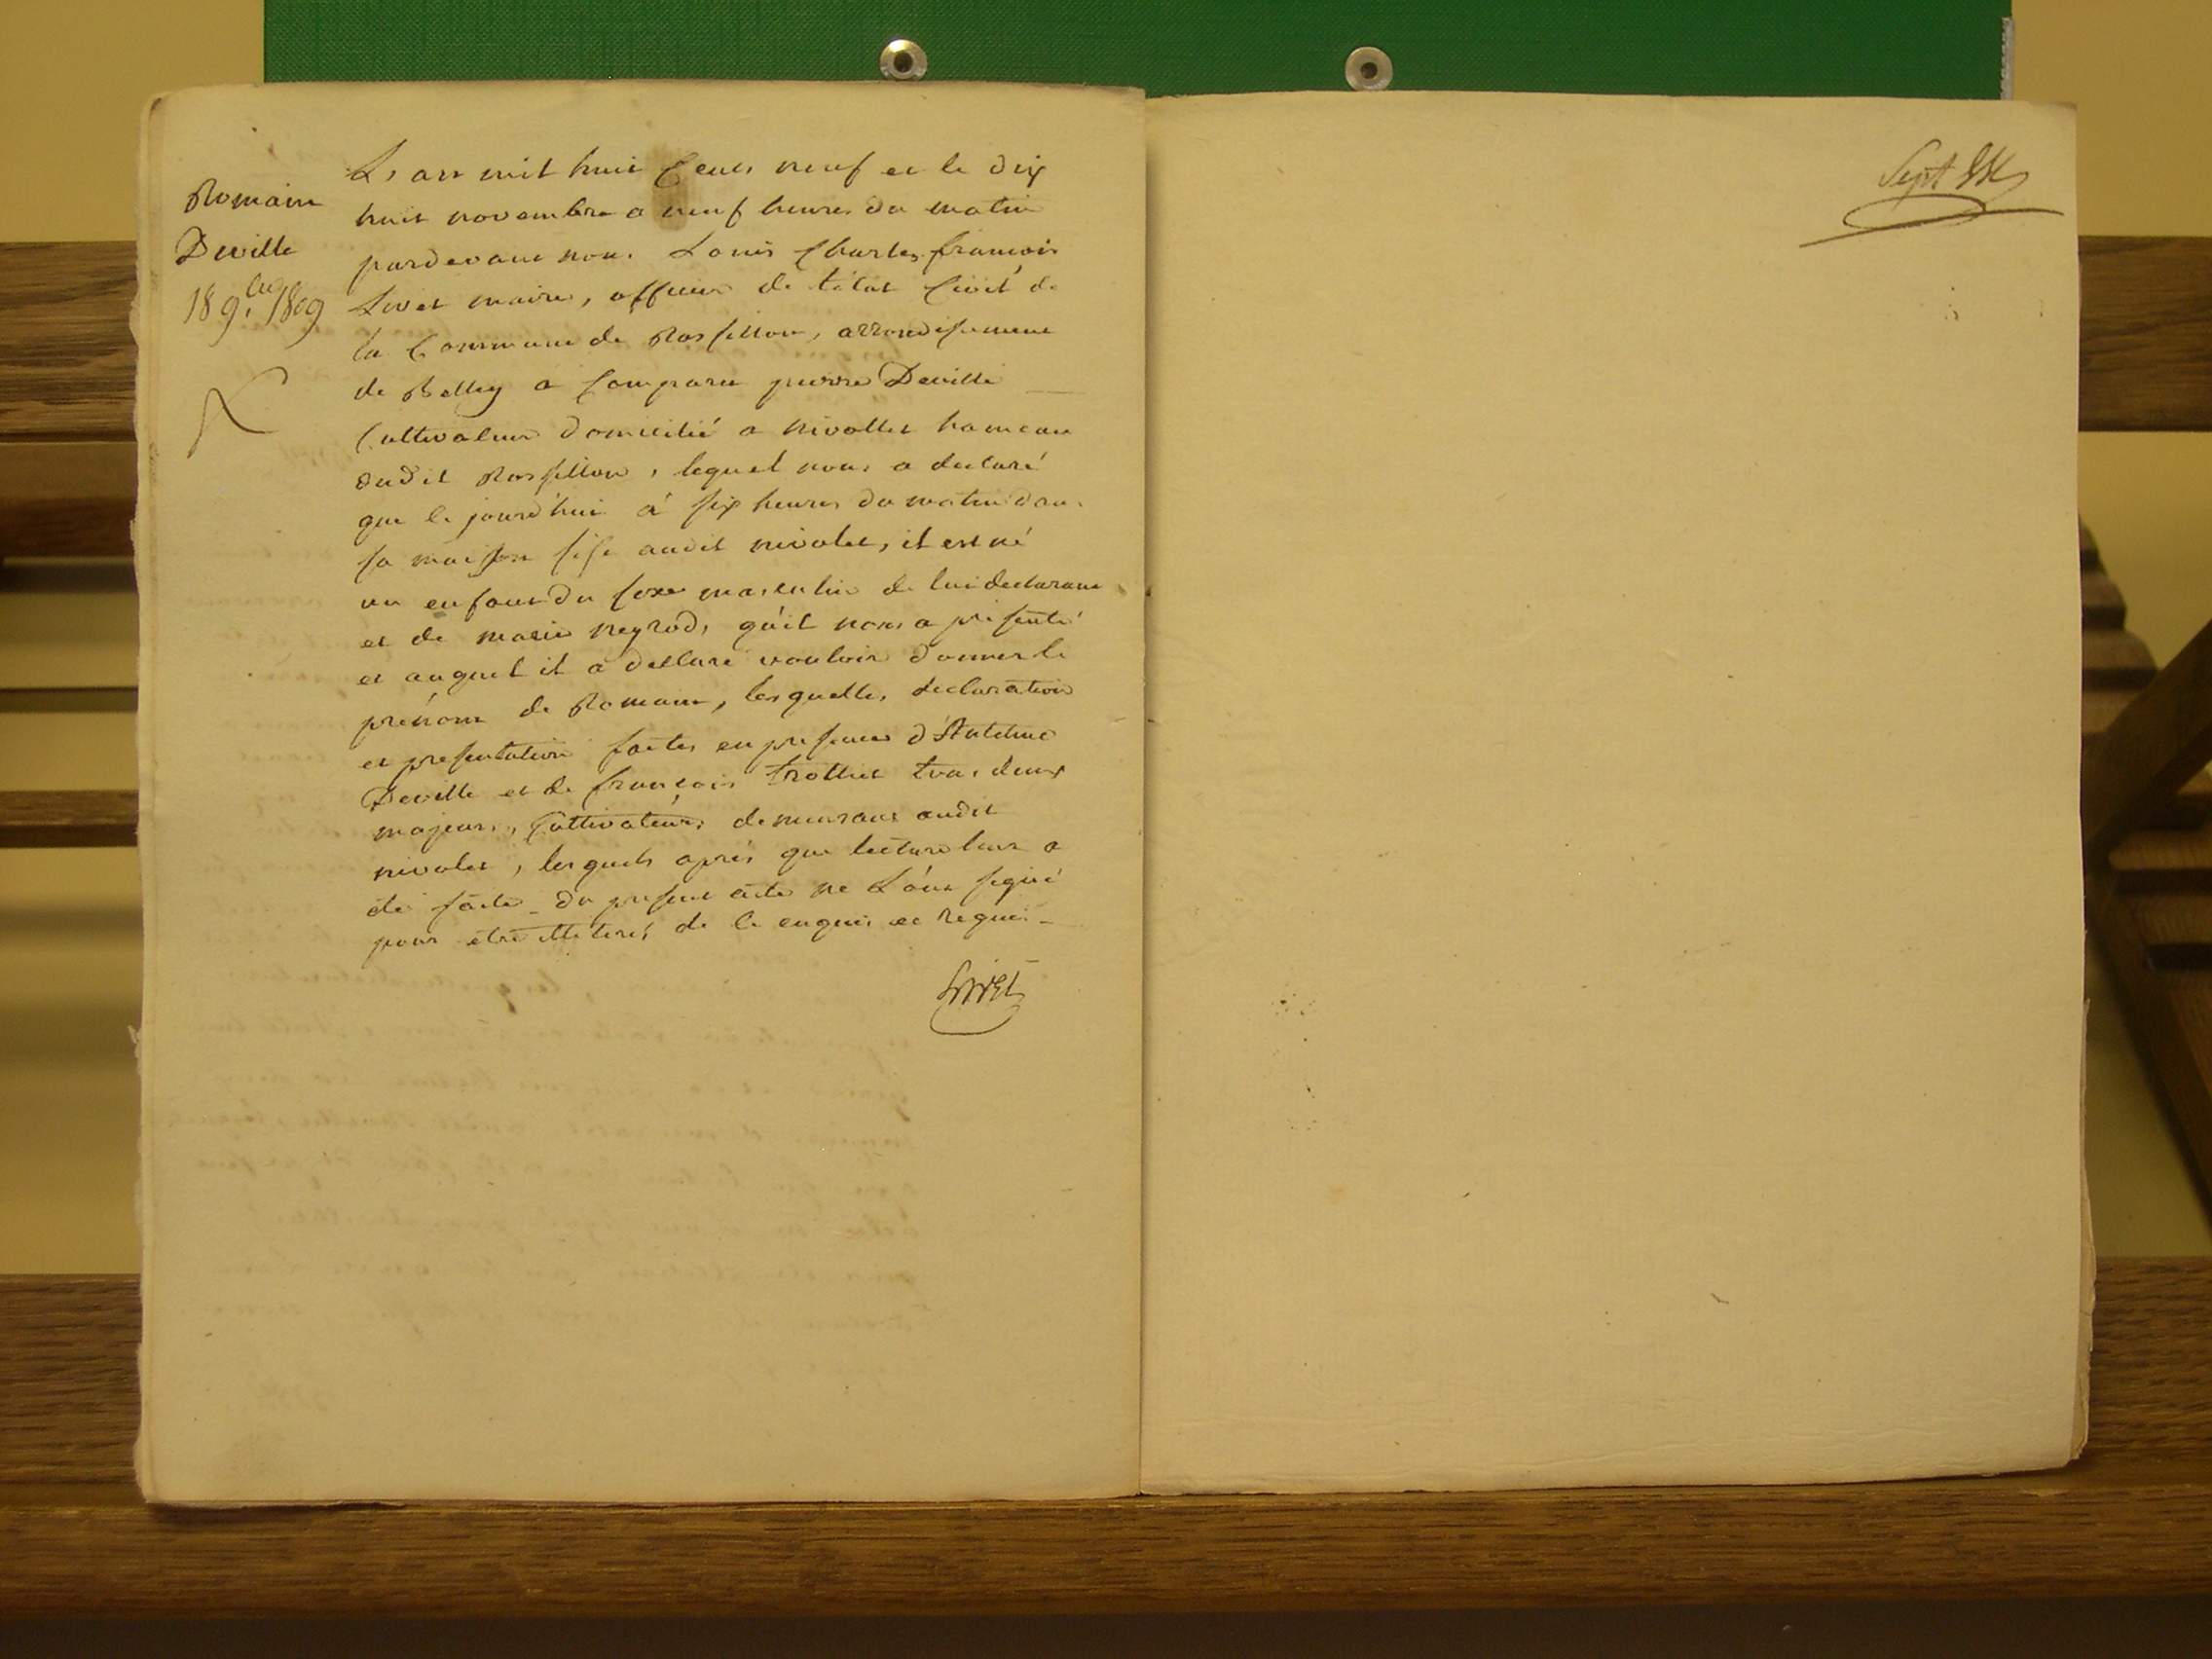 Romain
Deville
18 9.bre 1809
L'an mil huit Cents neuf et le dix
huit novembre a neuf heures du matin
pardevant nous Louis Charles françois
Livet maire, officier de l'état Civil de
la Commune de Rossillon, arrondissement
de Belley a Comparu pierre Deville
Cultivateur domicilié a nivollet hameau
dudit Rossillon, lequel nous a declaré
que le jourd'hui à six heures du matin dans
sa maison sise audit nivolet, il est né
un enfant du sexe masculin de lui declarant
et de marie neyrod, qu'il nous a présenté
et auquel il a declaré vouloir donner le
prénom de Romain, lesquelles declaration
et presentation faites en presence d'Antelme
Deville et de françois trollier tous deux
majeurs, Cultivateurs demeurans audit
nivolet, lesquels après que lecture leur a
été faite du present acte ne L'ont signé
pour etre illiterés de ce enquis et requis
Livet
Sept